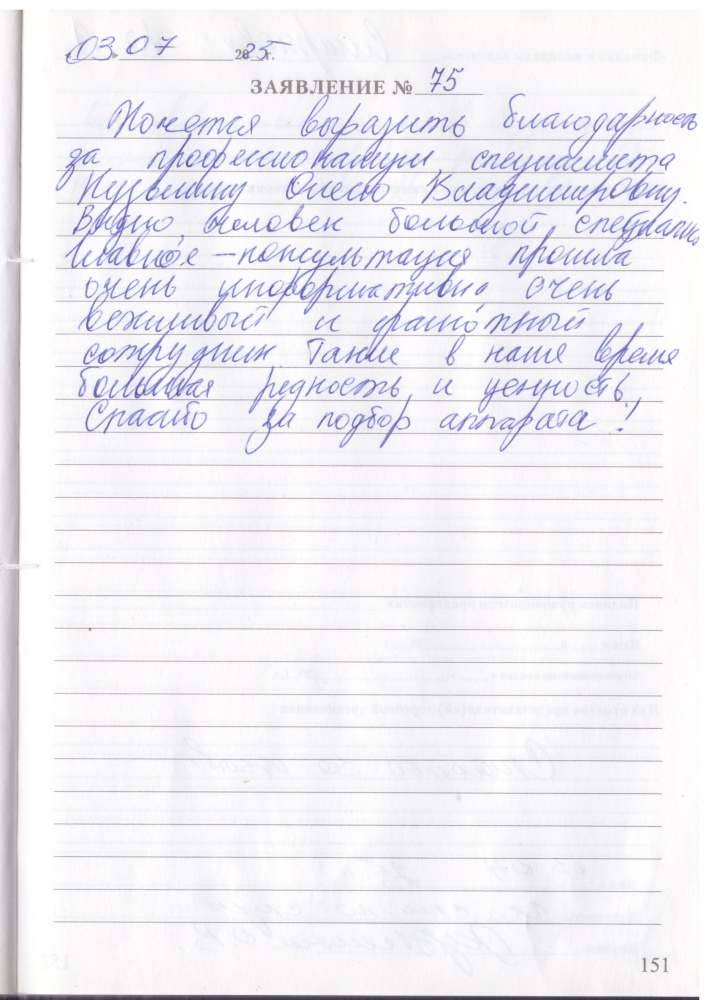 03.07 2025 г.
ЗАЯВЛЕНИЕ № 75
Хочется выразить благодарность
за профессионализм специалиста
Кузьмину Олесю Владимировну.
Видно, человек большой специалист,
Главное – консультация прошла
очень информативно, очень
вежливый и грамотный
сотрудник Такие в наше время
большая редкость и ценность,
Спасибо за подбор аппарата!
151